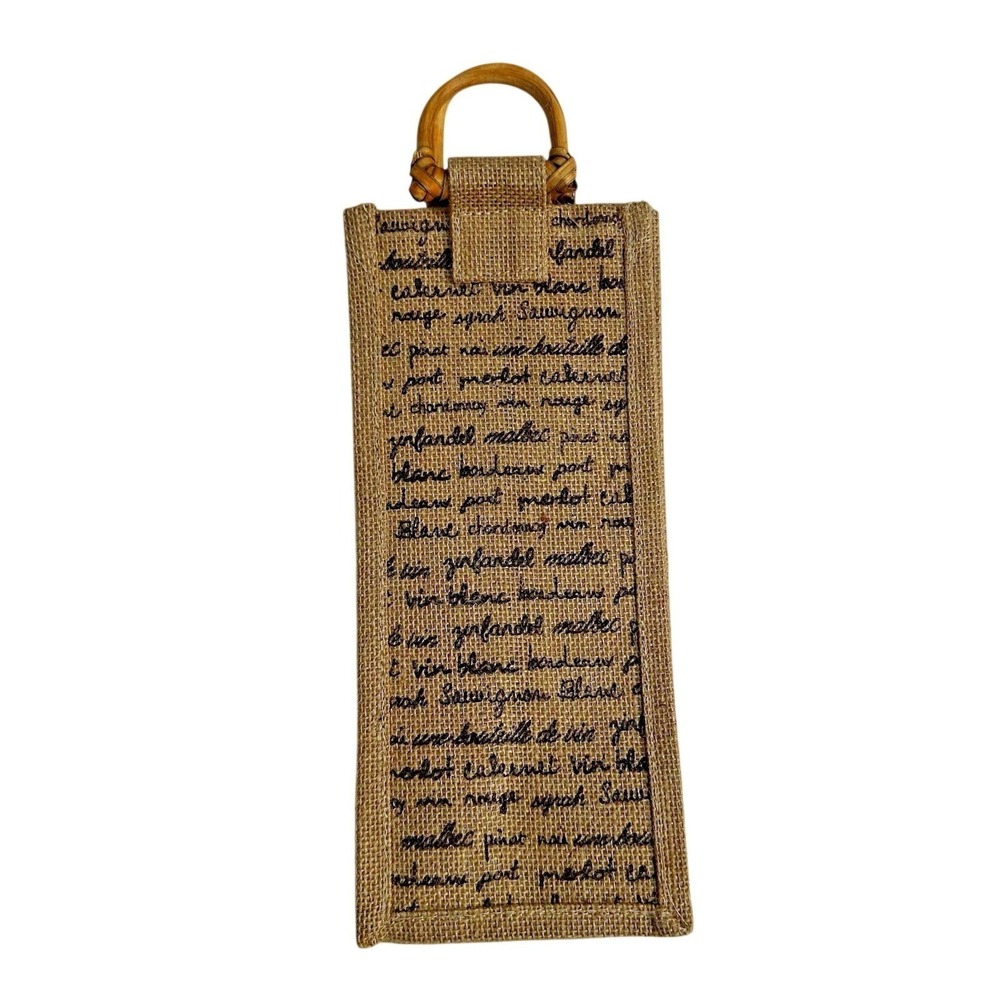 chardonnay
cabernet vin blanc
rouge syrah Sauvignon
pinot noi une bouteille de
port merlot cabernet
chardonnay vin rouge sy
zinfandel malbec pinot no
blanc bordeaux port m
rdeaux port merlot cab
Blanc chardonnay vin rou
un zinfandel malbec p
vin blanc bordeaux po
un zinfandel malbec p
t vin blanc bordeaux p
rah Sauvignon Blanc c
une bouteille de vin zinf
erlot cabernet vin bla
ay vin rouge syrah Sauvi
malbec pinot noi une bou
rdeaux port merlot ca